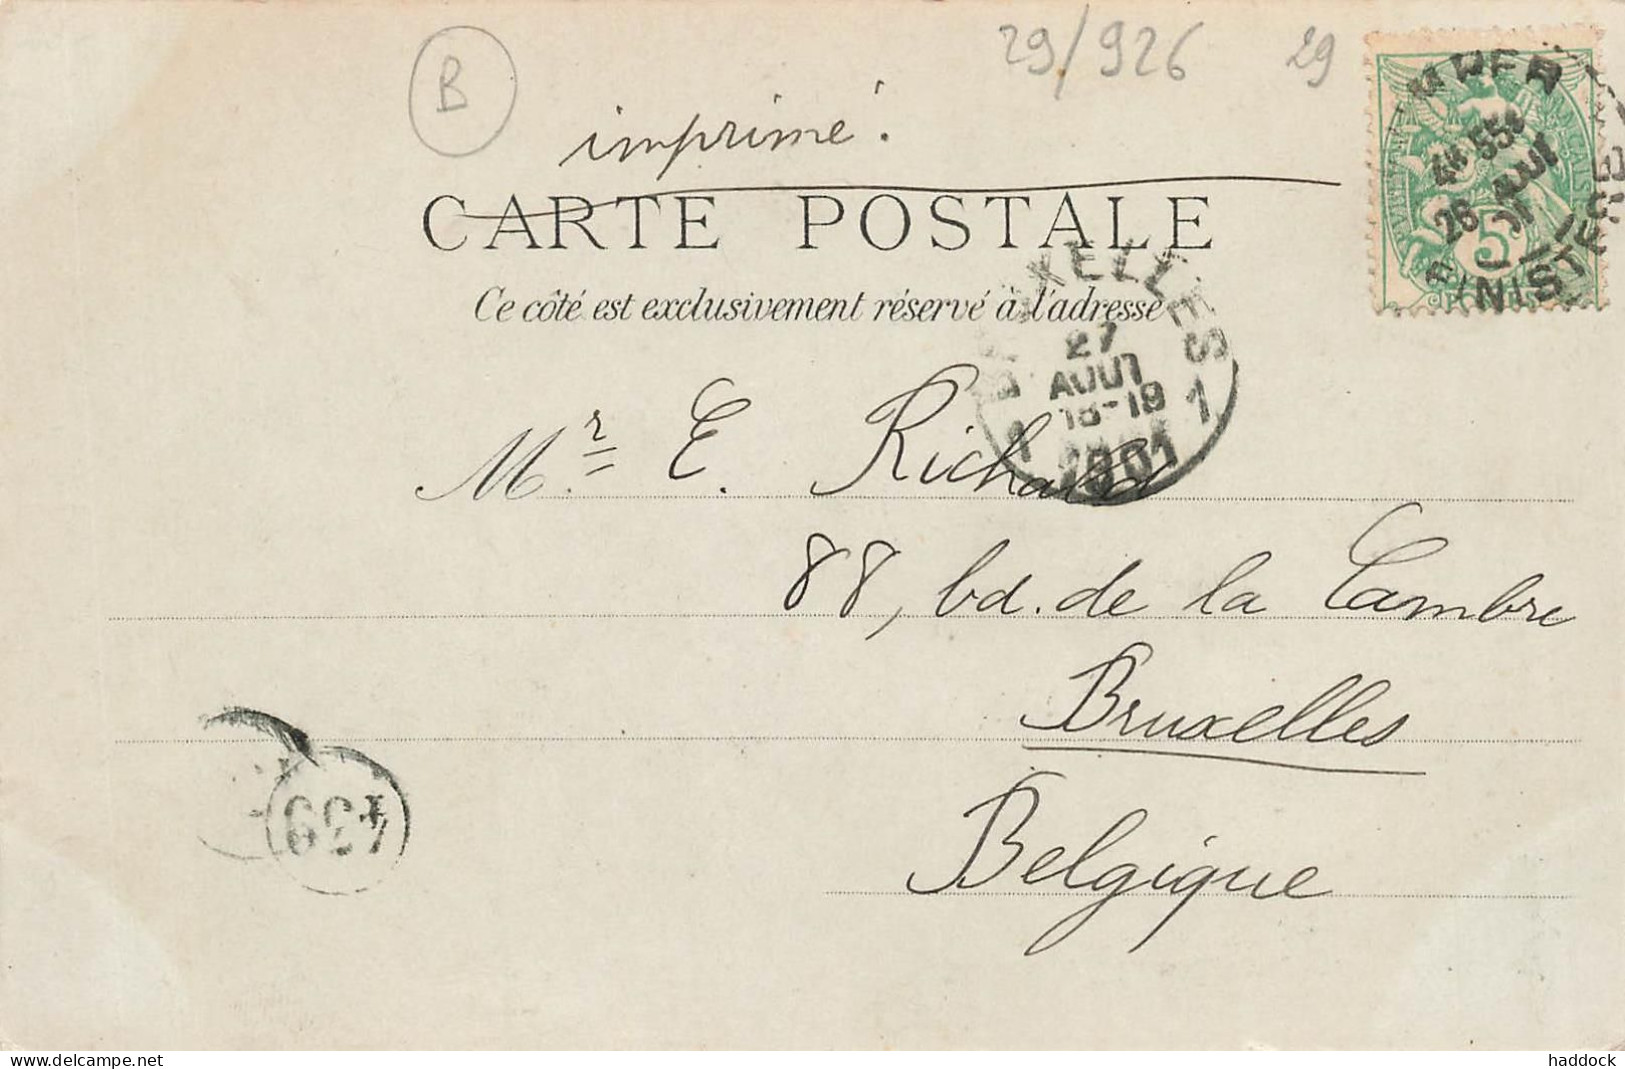 29/926 29
B
imprimé.
CARTE POSTALE
Ce côté est exclusivement réservé à l'adresse
4E 55
26 AOUT
01
FINISTERE
5
BRUXELLES
27
AOUT
18-19
1 1
1901
Mr. E. Richald
88, bd. de la Cambre
Bruxelles
Belgique
www.delcampe.net
haddock